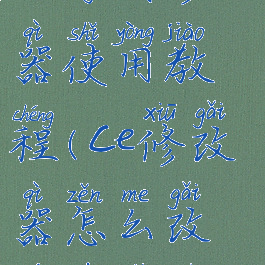 qì shǐ yòng jiào
器使用教
chéng xiū gǎi
程(ce修改
qì zěn me gǎi
器怎么改